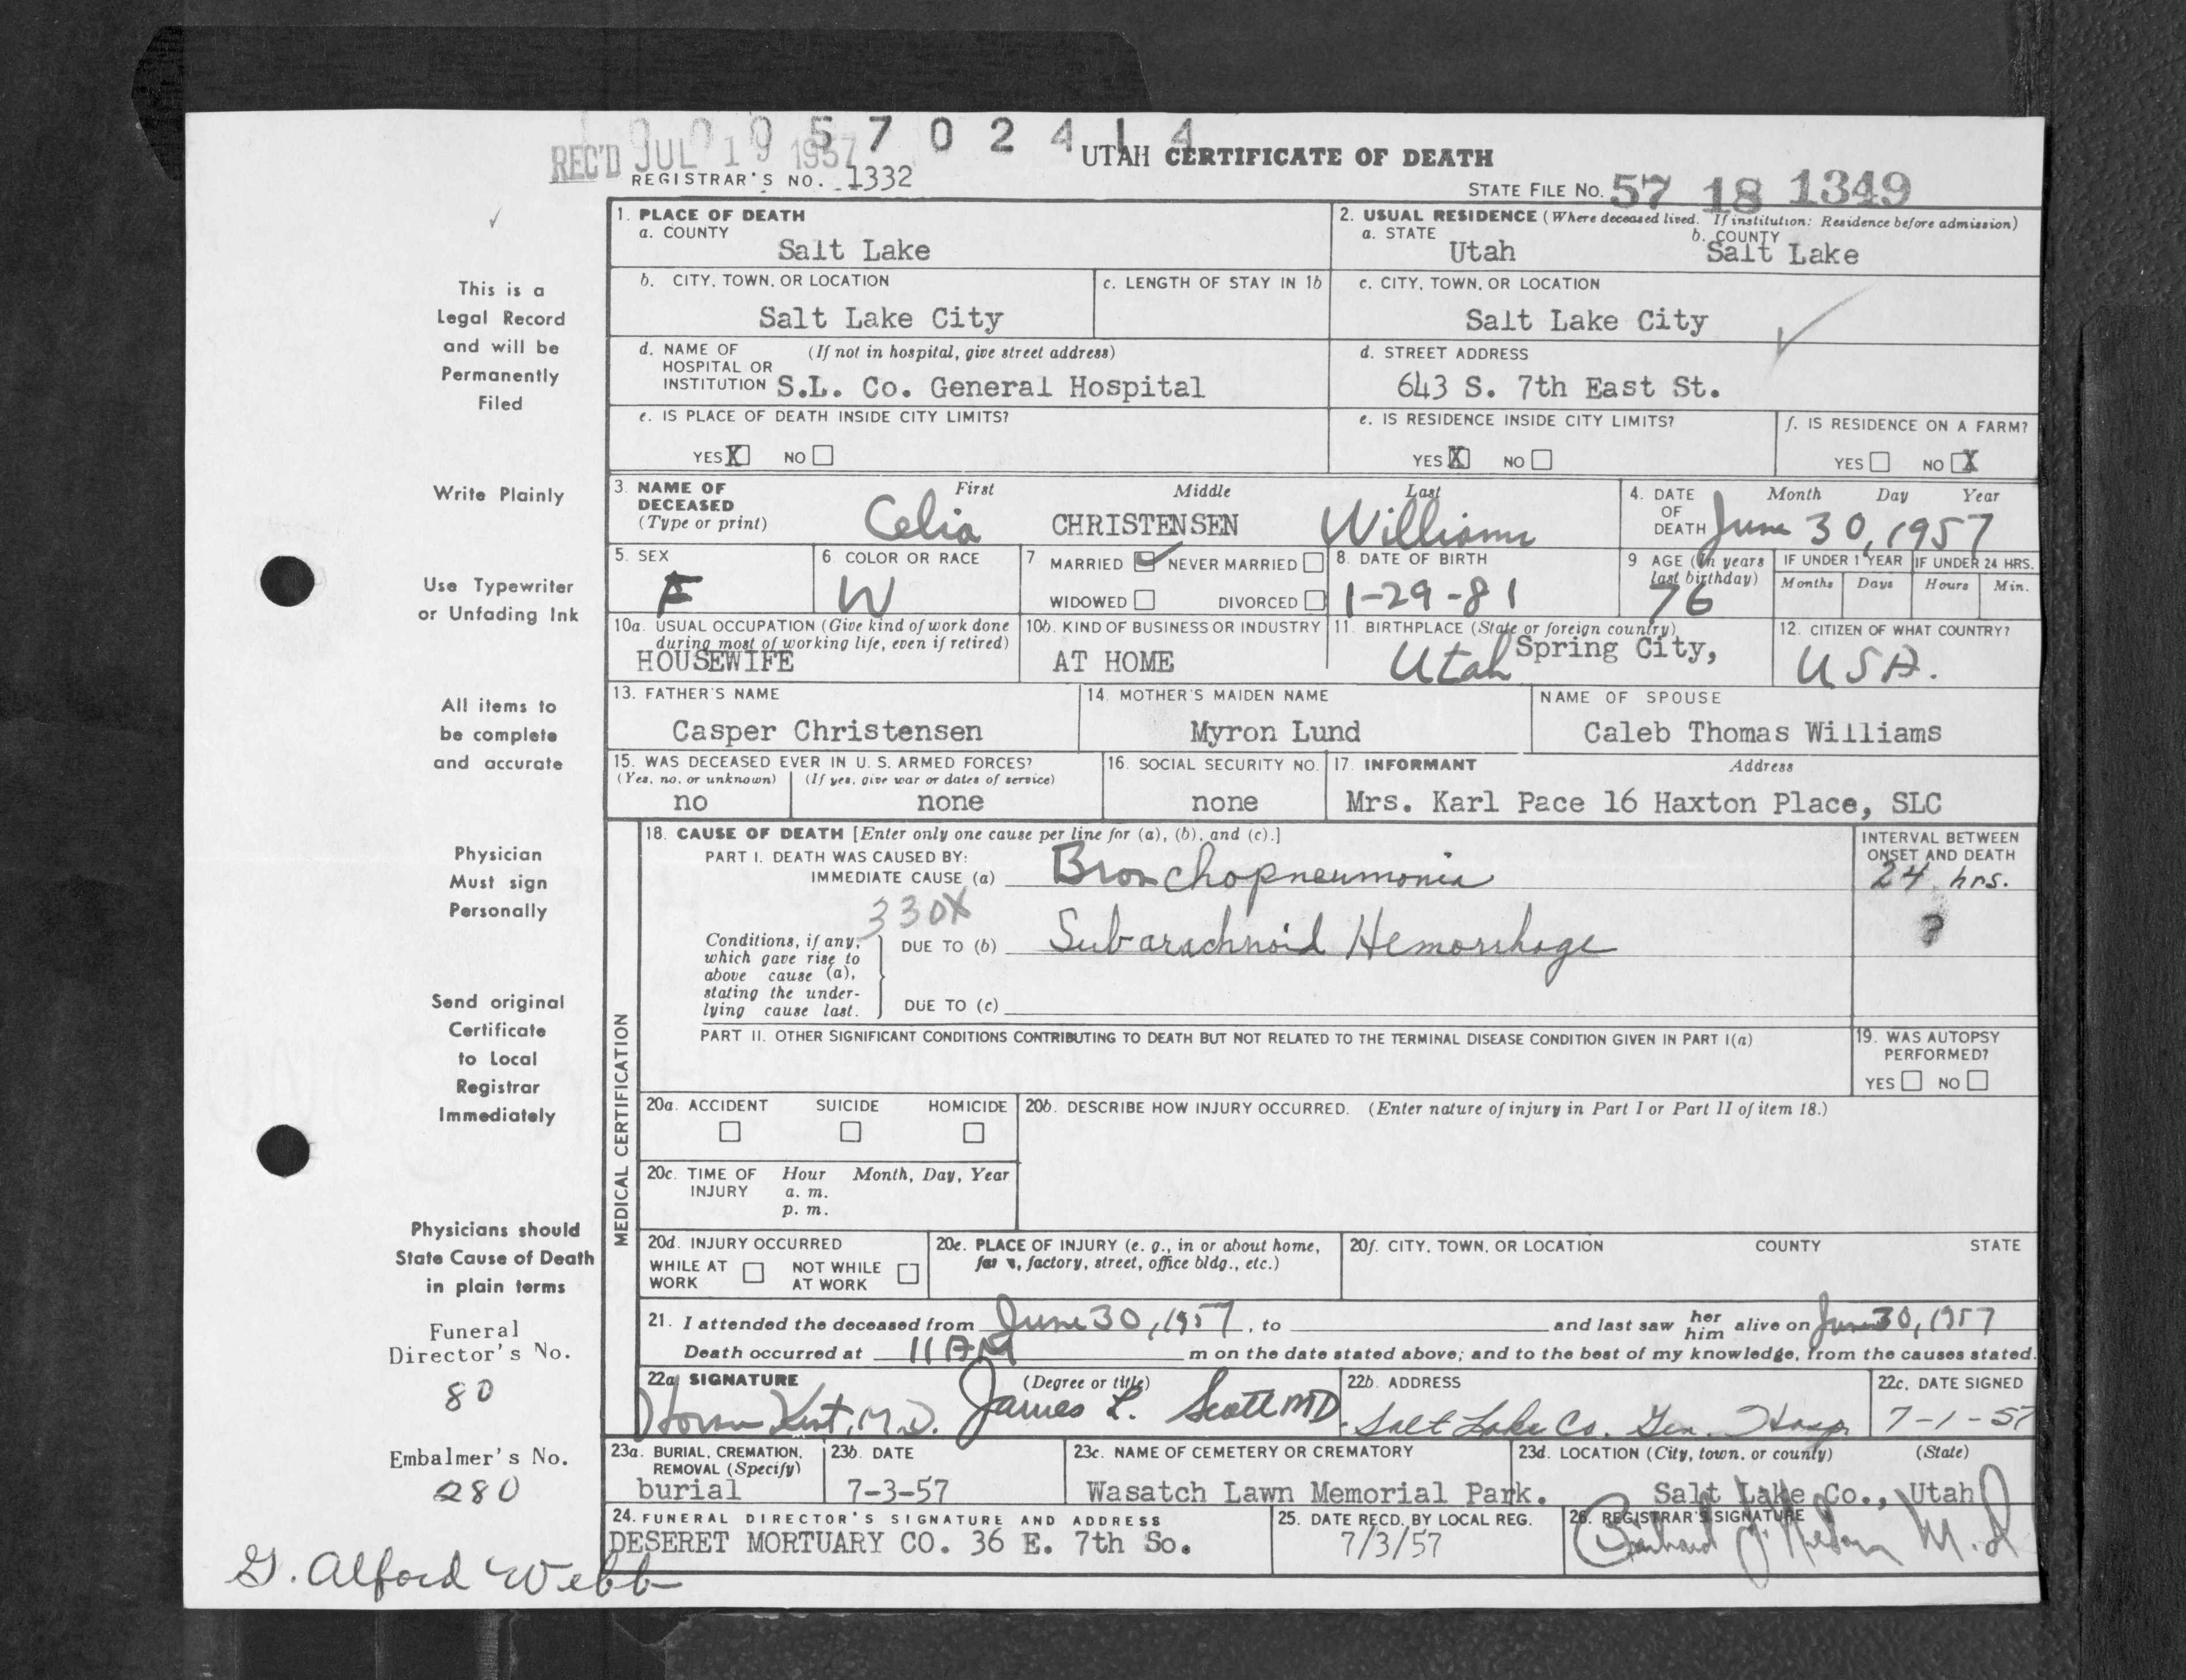 0 0 0 5 7 0 2 4 1 4
REC'D JUL 19 1957
UTAH CERTIFICATE OF DEATH
REGISTRAR'S NO. 1332
STATE FILE NO. 57 18 1349
This is a
Legal Record
and will be
Permanently
Filed
Write Plainly
Use Typewriter
or Unfading Ink
All items to
be complete
and accurate
Physician
Must sign
Personally
Send original
Certificate
to Local
Registrar
Immediately
Physicians should
State Cause of Death
in plain terms
Funeral
Director's No.
80
Embalmer's No.
280
G. Alford Webb
1. PLACE OF DEATH
a. COUNTY
Salt Lake
2. USUAL RESIDENCE (Where deceased lived. If institution: Residence before admission)
a. STATE
Utah
b. COUNTY
Salt Lake
b. CITY, TOWN, OR LOCATION
Salt Lake City
c. LENGTH OF STAY IN 1b
c. CITY, TOWN, OR LOCATION
Salt Lake City
d. NAME OF (If not in hospital, give street address)
HOSPITAL OR
INSTITUTION S.L. Co. General Hospital
d. STREET ADDRESS
643 S. 7th East St.
e. IS PLACE OF DEATH INSIDE CITY LIMITS?
YES X NO
e. IS RESIDENCE INSIDE CITY LIMITS?
YES X NO
f. IS RESIDENCE ON A FARM?
YES NO X
3. NAME OF DECEASED
(Type or print)
First Middle Last
Celia CHRISTENSEN Williams
4. DATE OF DEATH
Month Day Year
June 30, 1957
5. SEX
F
6. COLOR OR RACE
W
7 MARRIED NEVER MARRIED
WIDOWED DIVORCED
8. DATE OF BIRTH
1-29-81
9 AGE (In years last birthday)
76
IF UNDER 1 YEAR
Months Days
IF UNDER 24 HRS.
Hours Min.
10a. USUAL OCCUPATION (Give kind of work done
during most of working life, even if retired)
HOUSEWIFE
10b. KIND OF BUSINESS OR INDUSTRY
AT HOME
11. BIRTHPLACE (State or foreign country)
Utah Spring City,
12. CITIZEN OF WHAT COUNTRY?
USA.
13. FATHER'S NAME
Casper Christensen
14. MOTHER'S MAIDEN NAME
Myron Lund
NAME OF SPOUSE
Caleb Thomas Williams
15. WAS DECEASED EVER IN U. S. ARMED FORCES?
(Yes, no, or unknown) (If yes, give war or dates of service)
no none
16. SOCIAL SECURITY NO.
none
17. INFORMANT Address
Mrs. Karl Pace 16 Haxton Place, SLC
MEDICAL CERTIFICATION
18. CAUSE OF DEATH [Enter only one cause per line for (a), (b), and (c).]
PART I. DEATH WAS CAUSED BY:
IMMEDIATE CAUSE (a) Bronchopneumonia
INTERVAL BETWEEN
ONSET AND DEATH
24 hrs.
330X
Conditions, if any,
which gave rise to
above cause (a),
stating the under-
lying cause last.
DUE TO (b) Subarachnoid Hemorrhage
?
DUE TO (c)
PART II. OTHER SIGNIFICANT CONDITIONS CONTRIBUTING TO DEATH BUT NOT RELATED TO THE TERMINAL DISEASE CONDITION GIVEN IN PART I(a)
19. WAS AUTOPSY
PERFORMED?
YES NO
20a. ACCIDENT SUICIDE HOMICIDE
20b. DESCRIBE HOW INJURY OCCURRED. (Enter nature of injury in Part I or Part II of item 18.)
20c. TIME OF INJURY
Hour Month, Day, Year
a. m.
p. m.
20d. INJURY OCCURRED
WHILE AT WORK NOT WHILE AT WORK
20e. PLACE OF INJURY (e. g., in or about home,
farm, factory, street, office bldg., etc.)
20f. CITY, TOWN, OR LOCATION COUNTY STATE
21. I attended the deceased from June 30, 1957, to and last saw her him alive on June 30, 1957
Death occurred at 11 AM m on the date stated above; and to the best of my knowledge, from the causes stated.
22a. SIGNATURE (Degree or title)
M.D. James L. Scott MD
22b. ADDRESS
Salt Lake Co. Gen. Hosp
22c. DATE SIGNED
7-1-57
23a. BURIAL, CREMATION,
REMOVAL (Specify)
burial
23b. DATE
7-3-57
23c. NAME OF CEMETERY OR CREMATORY
Wasatch Lawn Memorial Park.
23d. LOCATION (City, town, or county) (State)
Salt Lake Co., Utah
24. FUNERAL DIRECTOR'S SIGNATURE AND ADDRESS
DESERET MORTUARY CO. 36 E. 7th So.
25. DATE RECD. BY LOCAL REG.
7/3/57
26. REGISTRAR'S SIGNATURE
M.D